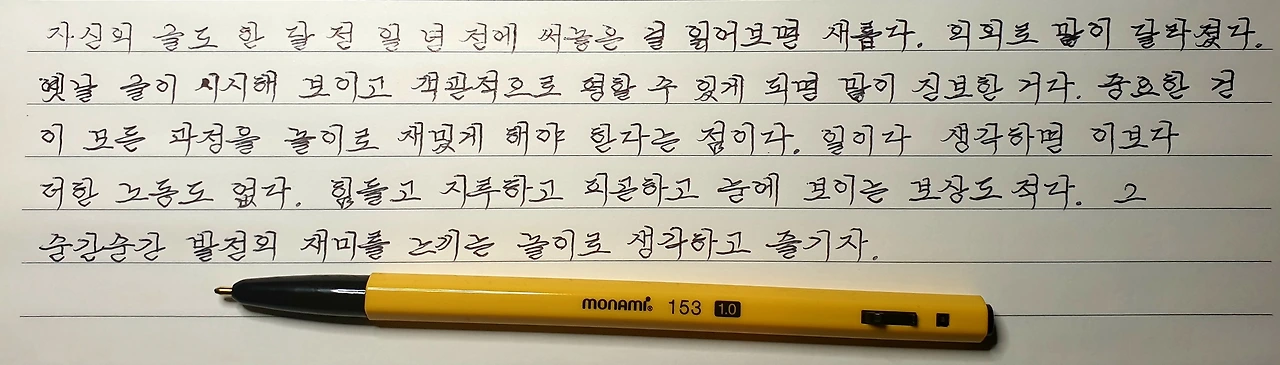 자신의 글도 한 달 전 일 년 전에 써놓은 걸 읽어보면 새롭다. 의외로 많이 달라졌다.
옛날 글이 시시해 보이고 객관적으로 평할 수 있게 되면 많이 진보한 거다. 중요한 건
이 모든 과정을 놀이로 재밌게 해야 한다는 점이다. 일이다 생각하면 이보다
더한 노동도 없다. 힘들고 지루하고 피곤하고 눈에 보이는 보상도 적다. 그
순간순간 발전의 재미를 느끼는 놀이로 생각하고 즐기자.
monami 153 1.0